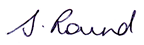 S. Round